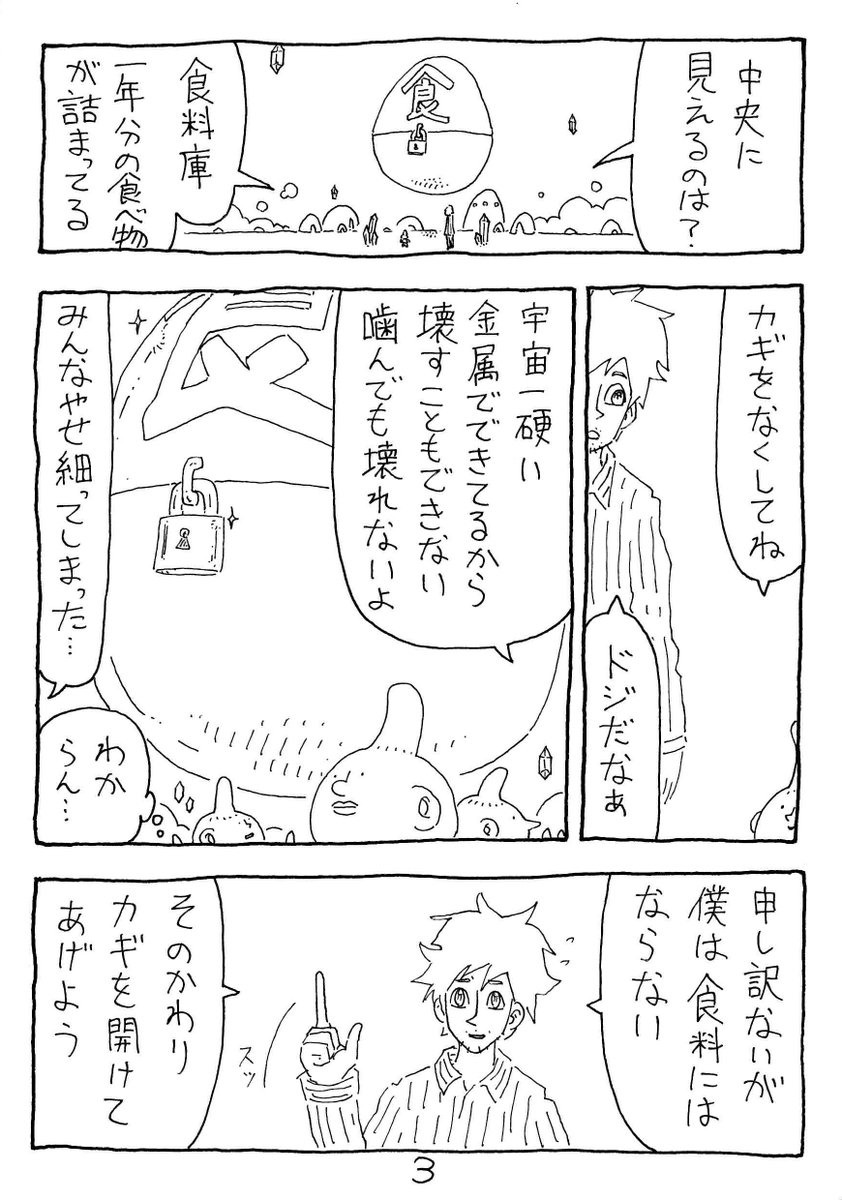 中央に
見えるのは?
食
食料庫
一年分の食べ物
が詰まってる
カギをなくしてね
ドジだなぁ
宇宙一硬い
金属でできてるから
壊すこともできない
噛んでも壊れないよ
みんなやせ細ってしまった…
わか
らん…
申し訳ないが
僕は食料には
ならない
そのかわり
カギを開けて
あげよう
スッ
3